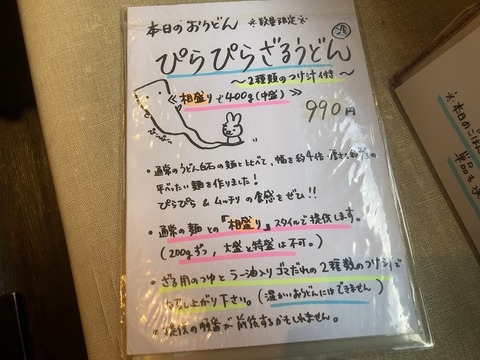 本日のおうどん ※数量限定※
ぴらぴらざるうどん
～2種類のつけ汁付～
《相盛りで400g(中盛)》
990円
・通常のうどん
の麺と比べて、幅を約4倍・厚さを約
平べったい麺を作りました！
ぴらぴら＆ムッチリの食感をぜひ!!
・通常の麺との「相盛り」スタイルで提供します。
(200gずつ、大盛と特盛は不可。)
・ざる用のつゆとラー油入りゴマだれの2種類のつけ汁で
お召し上がり下さい。(温かいおうどんにはできません)
の順番が前後するかもしれません。
※本日のごは
単品も